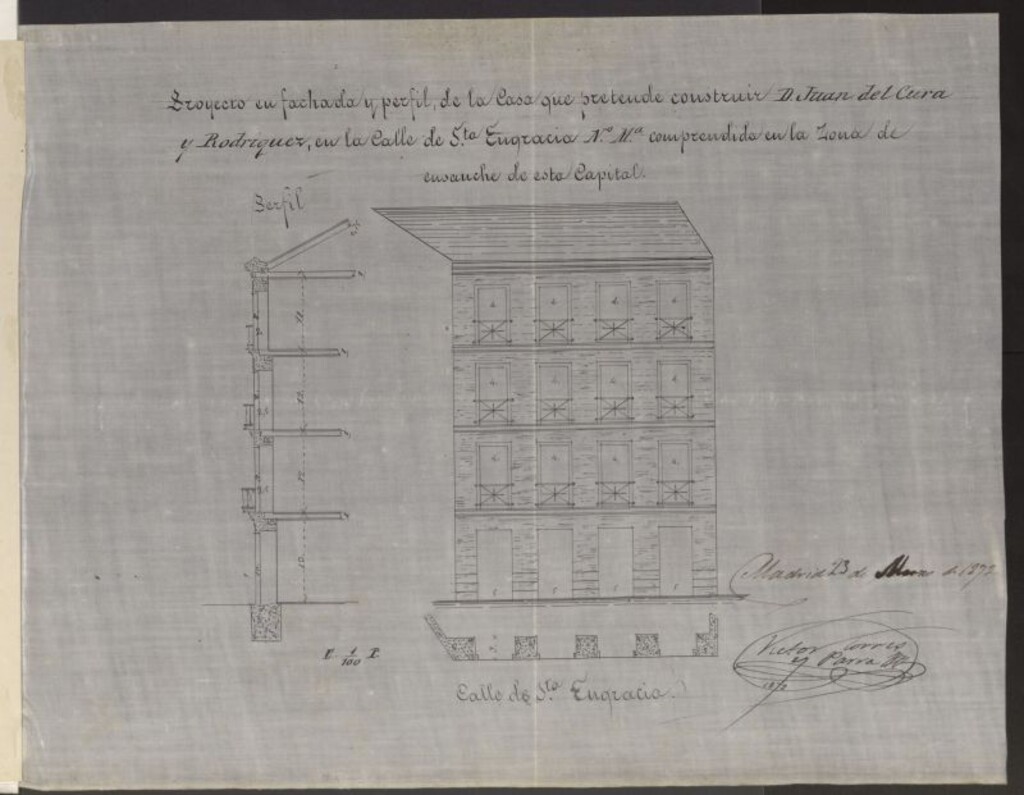 Proyecto en fachada y perfil, de la Casa que pretende construir D. Juan del Cura
y Rodriguez, en la Calle de Sta. Engracia No. Ma. comprendida en la Zona de
ensanche de esta Capital.
Perfil
Madrid 23 de de 1872
E. 1/100 P.
Victor Torres
y Parra
1872
Calle de Sta. Engracia.